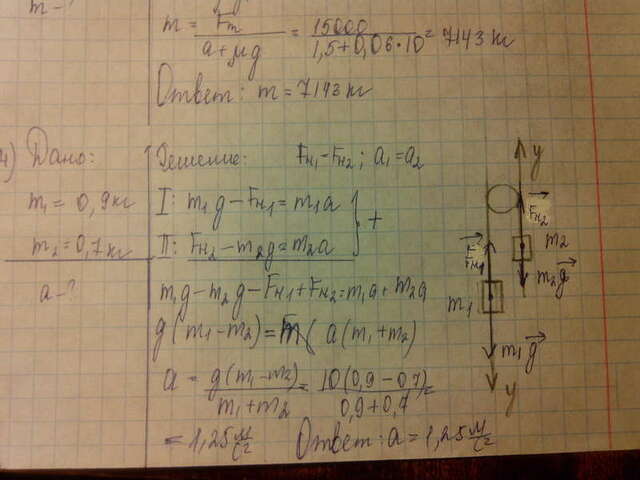 m - ?
m = Fт / a+μg = 15000 / 1,5+0,06·10 = 7143 кг
Ответ: m = 7143 кг
4) Дано:
m₁ = 0,9 кг
m₂ = 0,7 кг
a - ?
Решение: Fн₁ - Fн₂ ; a₁ = a₂
I: m₁g - Fн₁ = m₁a
II: Fн₂ - m₂g = m₂a } +
m₁g - m₂g - Fн₁ + Fн₂ = m₁a + m₂a
g(m₁ - m₂) = a(m₁ + m₂)
a = g(m₁ - m₂) / m₁ + m₂ = 10(0,9 - 0,7) / 0,9 + 0,7 =
= 1,25 м/с² Ответ: a = 1,25 м/с²
y
Fн₂
m₂
Fн₁
m₂g
m₁
m₁g
y